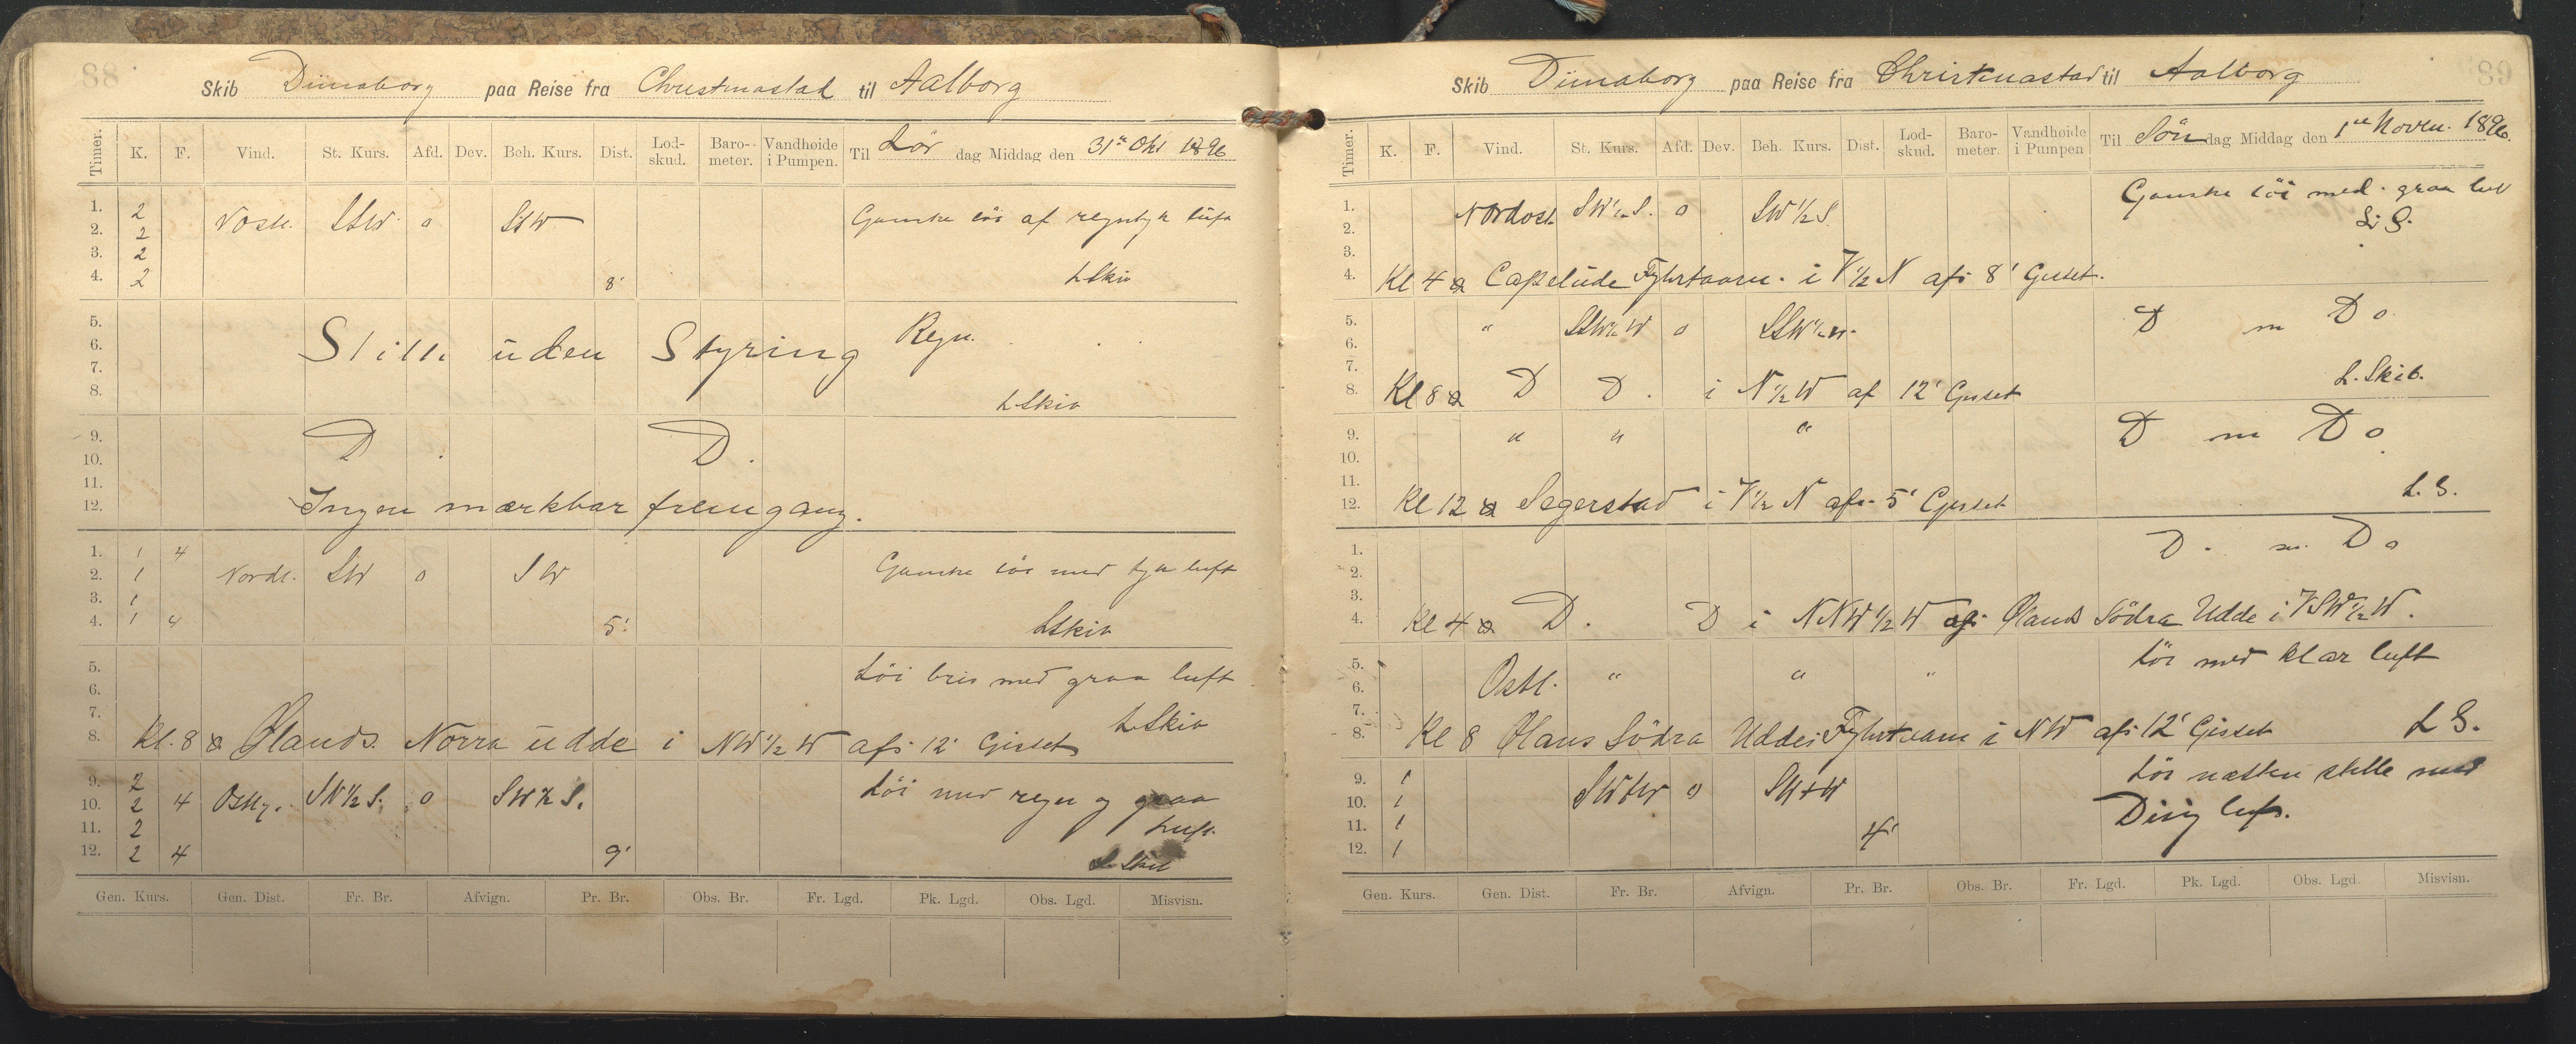 88
Skib Dünaborg paa Reise fra Christinastad til Aalborg
Timer. K. F. Vind. St. Kurs. Afd. Dev. Beh. Kurs. Dist. Lod-skud. Baro-meter. Vandhøide i Pumpen. Til Lör dag Middag den 31te Okt 1896
1. 2 Nostl. SSW. o SSW Ganske löi af regntyk luft
2. 2
3. 2
4. 2 8' L Skib
5. Regn.
6. Stille uden Styring
7.
8. L Skib
9. D D.
10.
11.
12. Ingen mærkbar fremgang.
1. 1 4
2. 1 Nordl. SW o SW Ganske löi med tyk luft
3. 1
4. 1 4 5' L Skib
5. Löi bris med graa luft
6.
7. L Skib
8. Kl. 8 Ølands Norra udde i NW½W afs 12' Gisset
9. 2 Löi med regn og graa
10. 2 4 Ostlg. SW½S. o SW½S. Luft.
11. 2
12. 2 4 9' L. Skib
Gen. Kurs. Gen. Dist. Fr. Br. Afvign. Pr. Br. Obs. Br. Fr. Lgd. Pk. Lgd. Obs. Lgd. Misvisn.
89
Skib Dünaborg paa Reise fra Christinastad til Aalborg
Timer. K. F. Vind. St. Kurs. Afd. Dev. Beh. Kurs. Dist. Lod-skud. Baro-meter. Vandhøide i Pumpen Til Sön dag Middag den 1te Novbr. 1896.
1. Nordost SW½S. o SW½S Ganske löi med graa luft
2. L. S.
3.
4. Kl 4 Capelude Fyhrtaarn i V½N afs 8' Gisset.
5. " SSW½W o SSW½W. D m Do
6.
7. L. Skib.
8. Kl 8 D D. i N½W af 12' Gisset
9. " " " D m Do
10.
11. L. S.
12. Kl 12 Segerstad i V½N afs 5' Gisset
1. D. m. Do
2.
3.
4. Kl 4 D. D i NNW½W afs Ølands Södra Udde i VSW½W.
5. Löi med klar luft
6. Ostl. " " "
7.
8. Kl 8 Ølans Södra Uddes Fyhrtaarn i NW afs 12' Gisset L S.
9. 1 SWtW o SWtW Löi næsten stille med
10. 1 Disig luft.
11. 1 4'
12. 1
Gen. Kurs. Gen. Dist. Fr. Br. Afvign. Pr. Br. Obs. Br. Fr. Lgd. Pk. Lgd. Obs. Lgd. Misvisn.